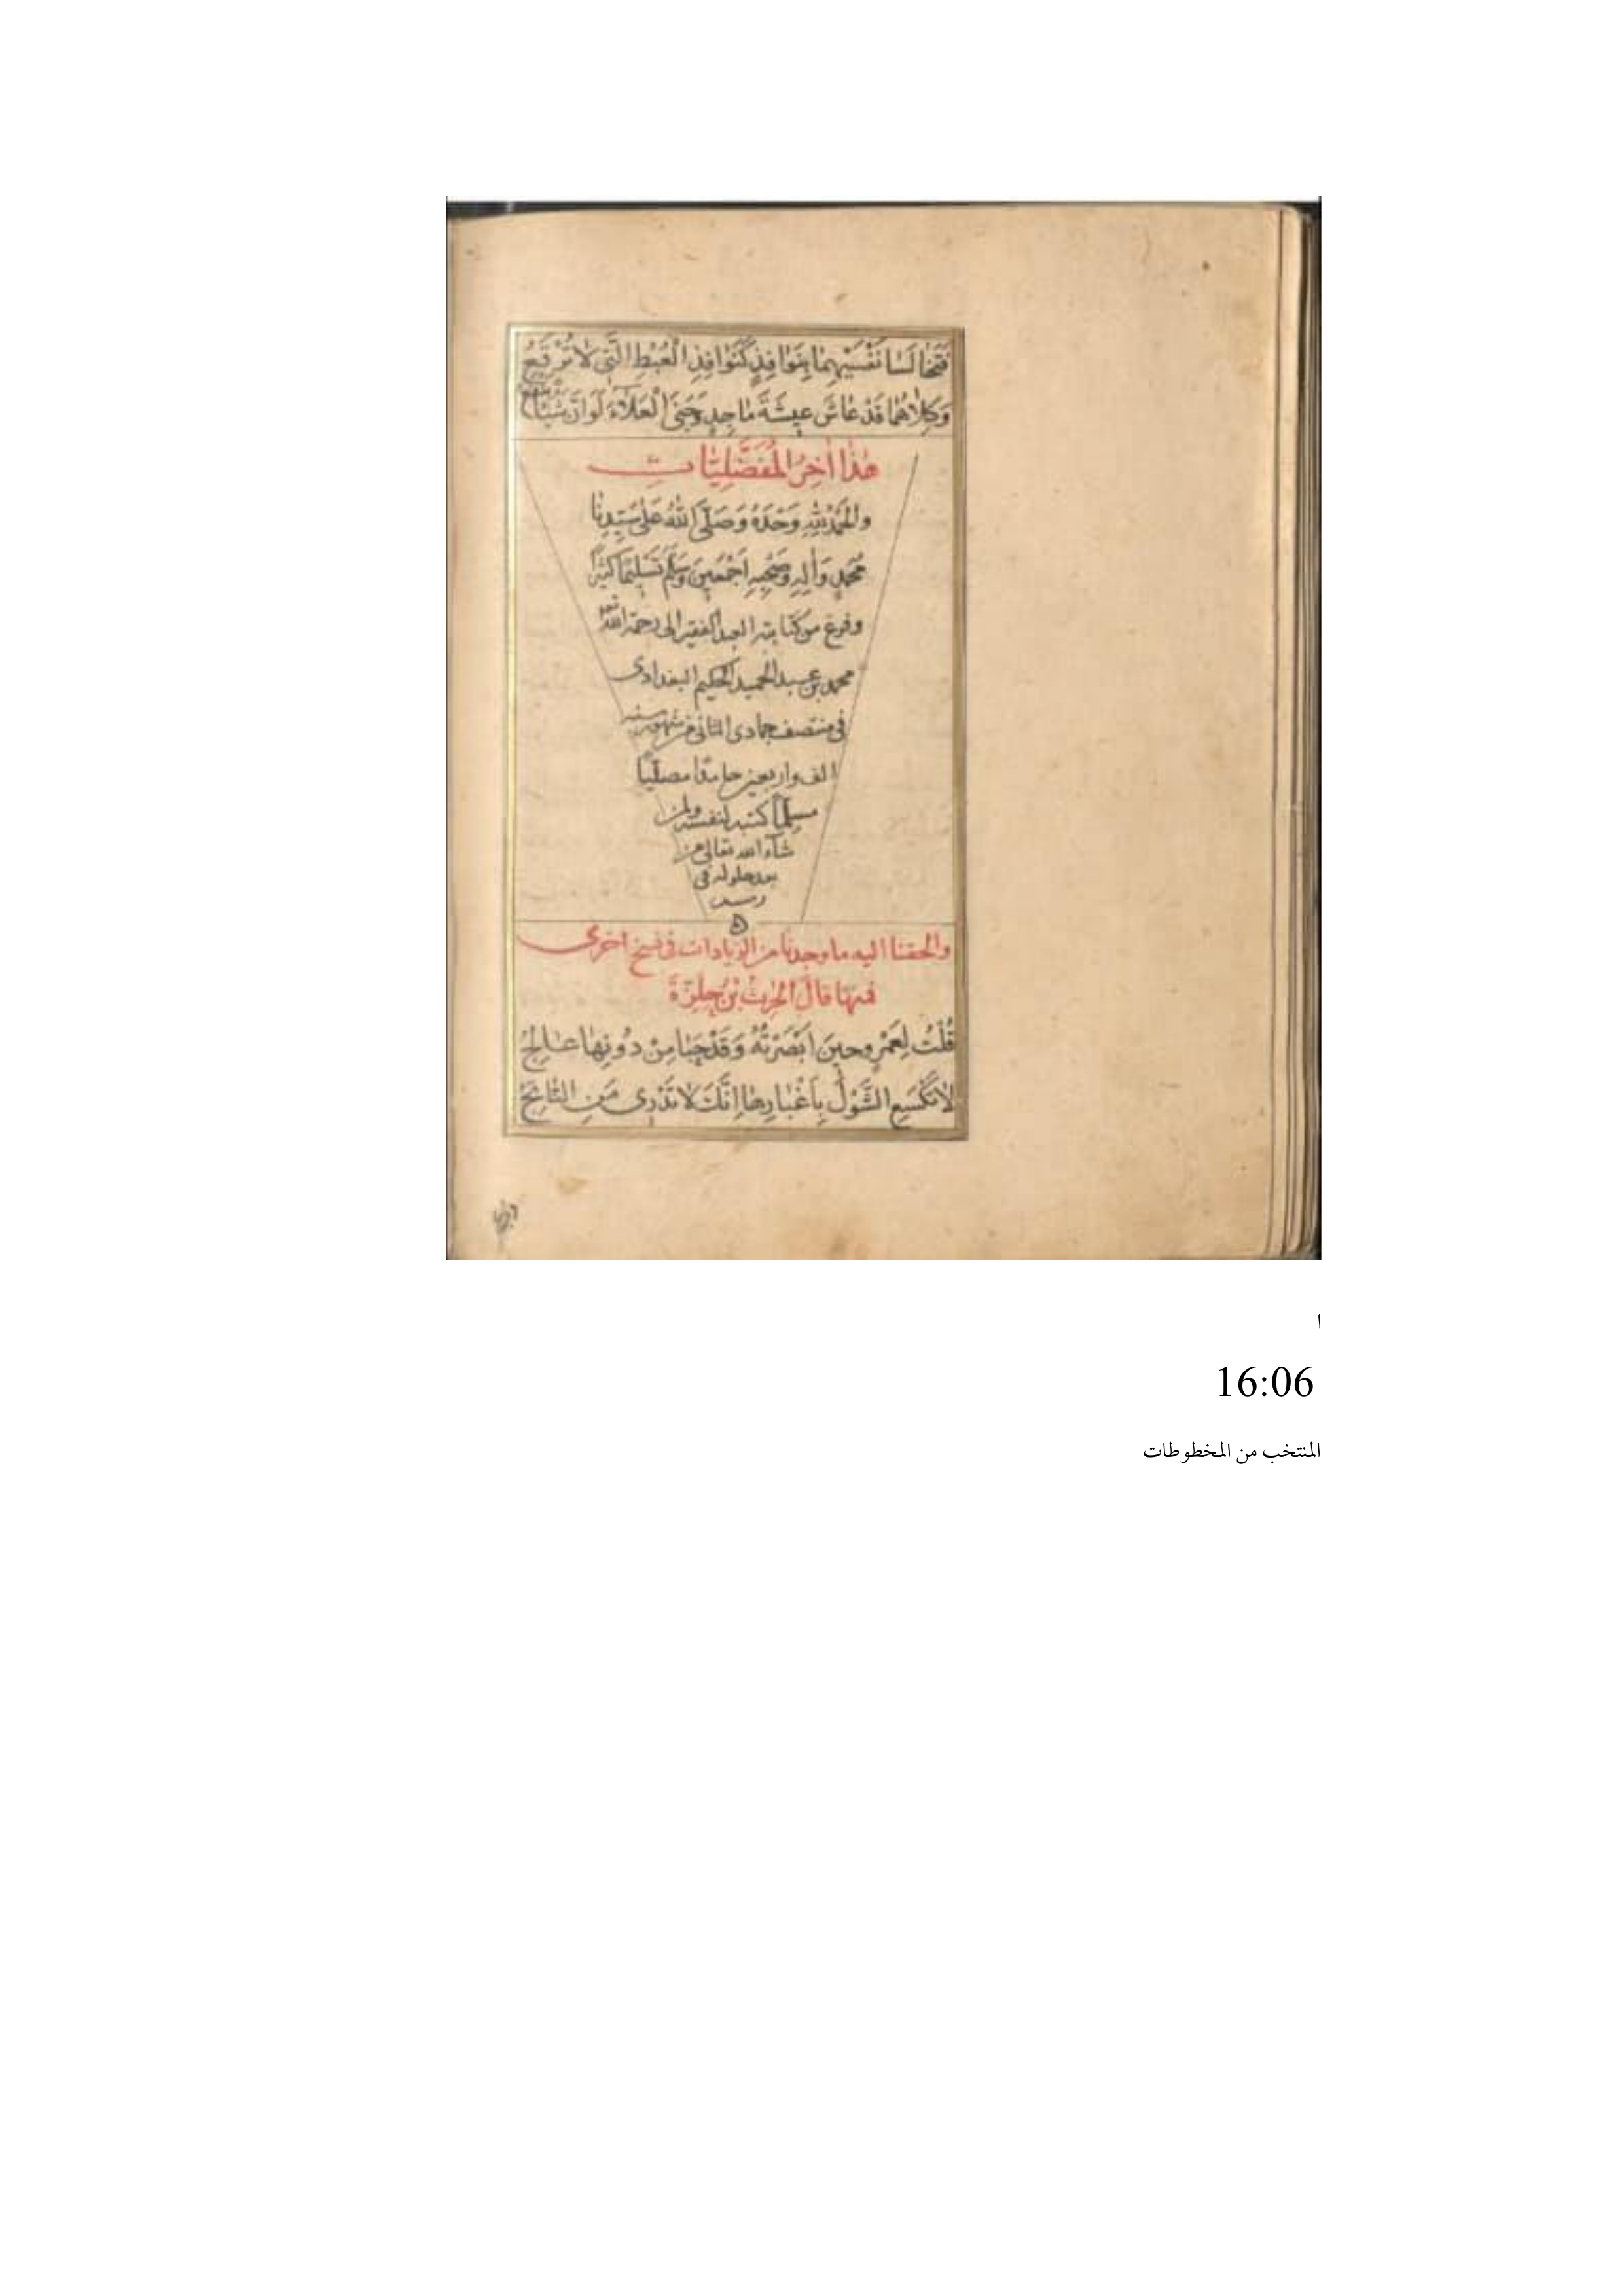 فَتَخَالَسَا نَفْسَيْهِمَا بِنَوَافِذٍ كَنَوَافِذِ الْعُبُطِ الَّتِى لَا تُرْقَعُ
وَكِلَاهُمَا قَدْ عَاشَ عِيشَةَ مَاجِدٍ وَجَنَى الْعَلَآءَ لَوْ اَنَّ شَيْئًا يَنْفَعُ
هٰذَا اٰخِرُ الْمُفَضَّلِيَّاتِ
وَالْحَمْدُ لِلّٰهِ وَحْدَهُ وَصَلَّى اللّٰهُ عَلَى سَيِّدِنَا
مُحَمَّدٍ وَاٰلِهِ وَصَحْبِهِ اَجْمَعِينَ وَسَلَّمَ تَسْلِيمًا كَثِيرًا
وفرغ من كتابته العبد الفقير الى رحمة الله
محمد بن عبد الحميد الحكيم البغدادى
فى منتصف جمادى الثانى من شهور سنه
الف واربعين حامدًا مصلّيًا
مسلمًا كتبه لنفسه ولمن
شآء الله تعالى من
بعد حلوله فى
رمسه
ه
والحقنا اليه ما وجدنا من الزيادات فى نسخ اخرى
فمنها قال الْحٰرِثُ بْنُ حِلِزَةَ
قُلْتُ لِعَمْرٍو حِينَ اَبْصَرْتُهُ وَقَدْ حَبَا مِنْ دُونِهَا عَالِجُ
لَا تَكْسَعِ الشَّوْلَ بِاَغْبَارِهَا اِنَّكَ لَا تَدْرِى مَنِ النَّاتِجُ
ا
16:06
المنتخب من المخطوطات